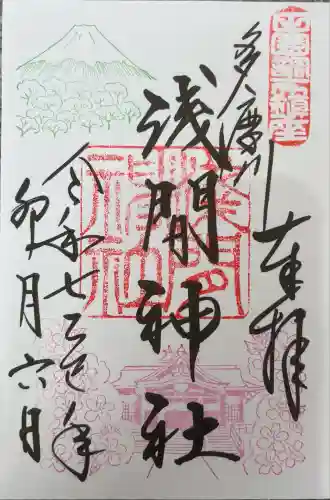 多摩川
奉拝
浅間神社
令和七乙巳年
卯月六日